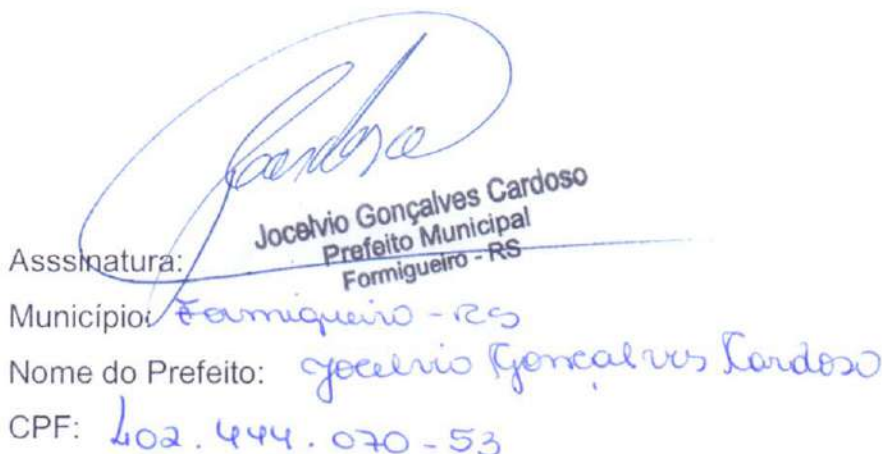 Cardoso
Jocelvio Gonçalves Cardoso
Prefeito Municipal
Formigueiro - RS
Asssinatura:
Município: Formigueiro - RS
Nome do Prefeito: Jocelvio Gonçalves Cardoso
CPF: 402.444.070-53